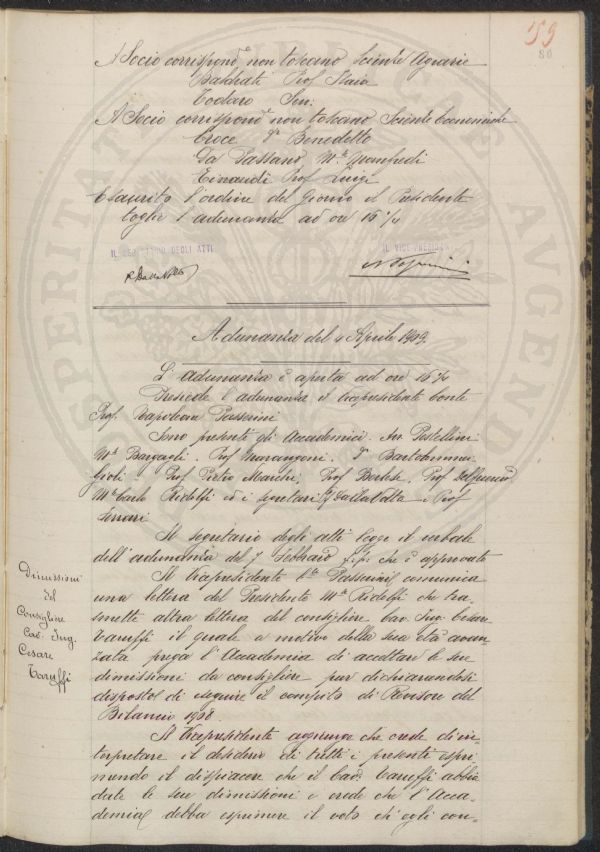 159
80
A Socio corrispond.e non toscano Scienze Agrarie
Prof
Todaro Sen.
A Socio corrispond.e non toscano Scienze Economiche
Croce Dr Benedetto
Da Passano M.se Manfredi
Einaudi Prof Luigi
Esaurito l'ordine del Giorno il Presidente
toglie l'adunanza ad ore 16 ¼
IL SEGRETARIO DEGLI ATTI
IL VICE-PRESIDENTE
Adunanza del 4 Aprile 1909.
L'adunanza è aperta ad ore 15
Presiede l'adunanza il vicepresidente Conte
Prof. Napoleone Passerini
Sono presenti gli Accademici. Avv Pestellini
M.se Bargagli. Prof Marangoni. Dr Bartolommei
Gioli. Prof Pietro Marchi, Prof Berlese, Prof Delpuente
M.se Carlo Ridolfi ed i segretari Dalla Volta e Prof
Ferrari
Il segretario degli atti legge il verbale
dell'adunanza del 7 Febbraio che è approvato
Il Vicepresidente C.te Passerini comunica
una lettera del Presidente M.se Ridolfi che tra-
smette altra lettera del consigliere Cav. Ing. Cesare
Taruffi il quale a motivo della sua età avan-
zata prega l'Accademia di accettare le sue
dimissioni da consigliere pur dichiarandosi
disposto di eseguire il compito di Revisore del
Bilancio 1908.
Il Vicepresidente aggiunge che crede d'in-
terpretare il desiderio di tutti i presenti espri-
mendo il dispiacere che il Cav. Taruffi abbia
date le sue dimissioni e crede che l'Acca-
demia debba esprimere il voto ch'egli con-
Dimissioni
del
Consigliere
Cav. Ing.
Cesare
Taruffi